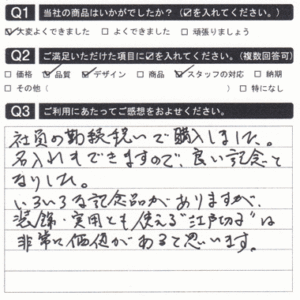 Q1 当社の商品はいかがでしたか?(☑を入れてください。)
☑大変よくできました □よくできました □頑張りましょう
Q2 ご満足いただけた項目に☑を入れてください。(複数回答可)
□価格 ☑品質 ☑デザイン □商品 ☑スタッフの対応 □納期
□その他( ) □特になし
Q3 ご利用にあたってご感想をおよせください。
社員の勤続祝いで購入しました。
名入れもできますので、良い記念と
なりました。
いろいろな記念品がありますが、
装飾・実用とも使える"江戸切子"は
非常に価値があると思います。